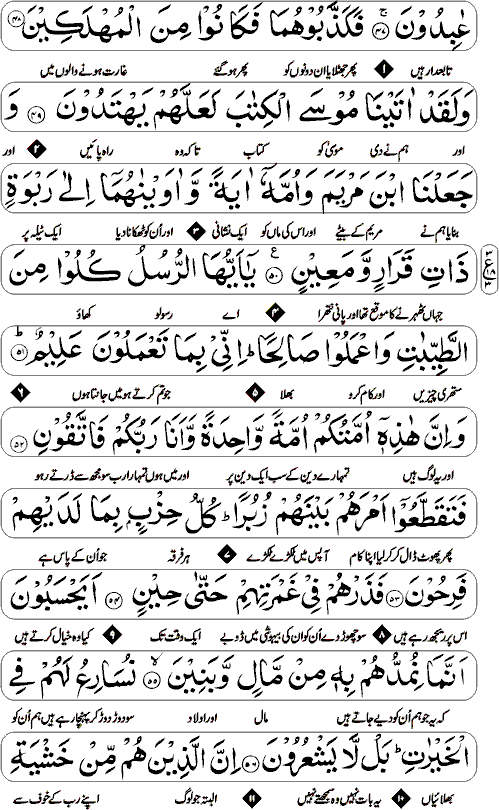 عٰبِدُوْنَ ۚ﴿۴۷﴾ فَكَذَّبُوْهُمَا فَكَانُوْا مِنَ الْمُهْلَكِيْنَ ﴿۴۸﴾
تابعدار ہیں ۱ پھر جھٹلایا ان دونوں کو پھر ہو گئے غارت ہونے والوں میں
وَلَقَدْ اٰتَيْنَا مُوْسَى الْكِتٰبَ لَعَلَّهُمْ يَهْتَدُوْنَ ﴿۴۹﴾ وَ
اور ہم نے دی موسیٰ کو کتاب تاکہ وہ راہ پائیں ۲ اور
جَعَلْنَا ابْنَ مَرْيَمَ وَاُمَّهٗۤ اٰيَةً وَّاٰوَيْنٰهُمَاۤ اِلٰى رَبْوَةٍ
بنایا ہم نے مریم کے بیٹے اور اس کی ماں کو ایک نشانی ۳ اور اُن کو ٹھکانا دیا ایک ٹیلہ پر
ذَاتِ قَرَارٍ وَّمَعِيْنٍ ﴿۵۰﴾ يٰۤاَيُّهَا الرُّسُلُ كُلُوْا مِنَ
جہاں ٹھہرنے کا موقع تھا اور پانی نتھرا ۴ اے رسولو کھاؤ
الطَّيِّبٰتِ وَاعْمَلُوْا صَالِحًا ؕ اِنِّىْ بِمَا تَعْمَلُوْنَ عَلِيْمٌ ؕ﴿۵۱﴾
ستھری چیزیں اور کام کرو بھلا ۵ جو تم کرتے ہو میں جانتا ہوں ۶
وَاِنَّ هٰذِهٖۤ اُمَّتُكُمْ اُمَّةً وَّاحِدَةً وَّاَنَا رَبُّكُمْ فَاتَّقُوْنِ ﴿۵۲﴾
اور یہ لوگ ہیں تمہارے دین کے سب ایک دین پر اور میں ہوں تمہارا رب سو مجھ سے ڈرتے رہو
فَتَقَطَّعُوْۤا اَمْرَهُمْ بَيْنَهُمْ زُبُرًا ؕ كُلُّ حِزْبٍۭ بِمَا لَدَيْهِمْ
پھر پھوٹ ڈال کر کر لیا اپنا کام آپس میں ٹکڑے ٹکڑے ۷ ہر فرقہ جو اُن کے پاس ہے
فَرِحُوْنَ ﴿۵۳﴾ فَذَرْهُمْ فِىْ غَمْرَتِهِمْ حَتّٰى حِيْنٍ ﴿۵۴﴾ اَيَحْسَبُوْنَ
اس پر ریجھ رہے ہیں ۸ سو چھوڑ دے اُن کو اُن کی بیہوشی میں ڈوبے ایک وقت تک ۹ کیا وہ خیال کرتے ہیں
اَنَّمَا نُمِدُّهُمْ بِهٖ مِنْ مَّالٍ وَّبَنِيْنَ ۙ﴿۵۵﴾ نُسَارِعُ لَهُمْ فِى
کہ یہ جو ہم اُن کو دیے جاتے ہیں مال اور اولاد سو دوڑ دوڑ کر پہنچا رہے ہیں ہم اُن کو
الْخَيْرٰتِ ؕ بَلْ لَّا يَشْعُرُوْنَ ﴿۵۶﴾ اِنَّ الَّذِيْنَ هُمْ مِّنْ خَشْيَةِ
بھلائیاں ۱۰ یہ بات نہیں وہ سمجھتے نہیں ۱۱ البتہ جو لوگ اپنے رب کے خوف سے